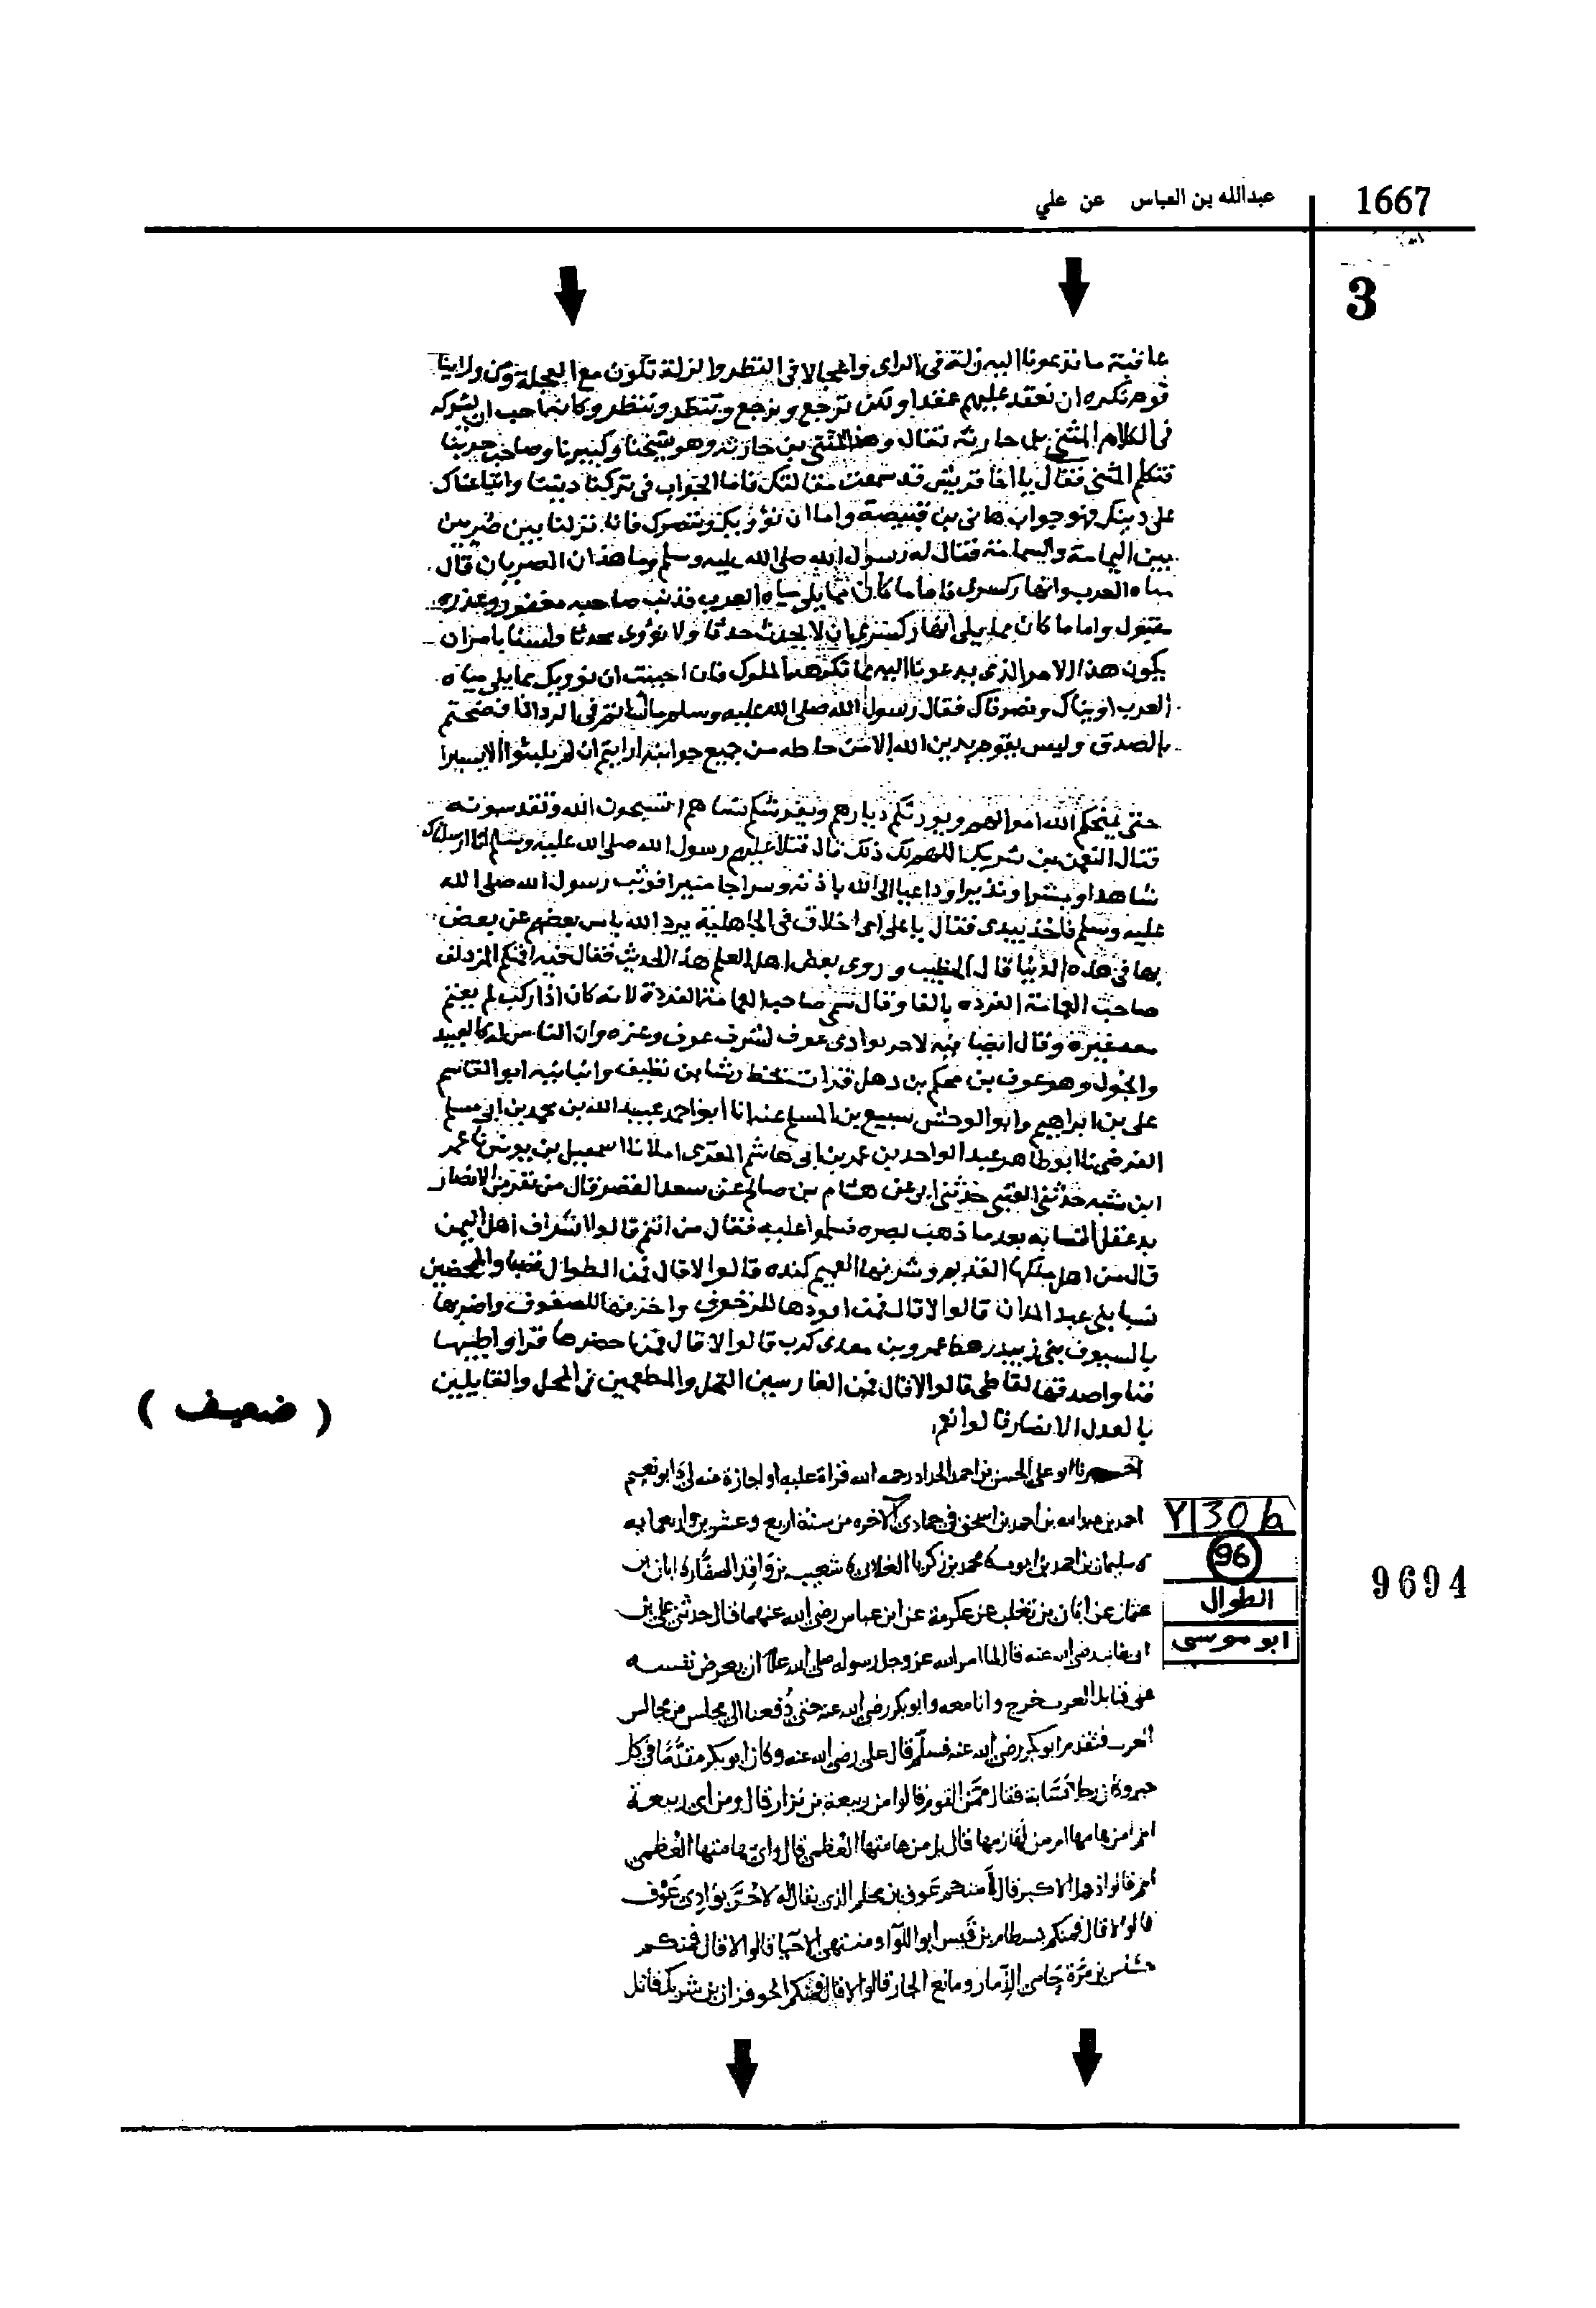 1667
عبدالله بن العباس عن علي
3
عاقبة ما تدعونا اليه زلة فى الراى واعجالا فى النظر والزلة تكون مع العجلة ومن وراينا
قوم نكره ان نعقد عليهم عقدا ولكن نرجع وترجع وتنظر وننظر وكانه احب ان يشركه
فى الكلام المثنى بن حارثة فقال وهذا المثنى بن حارثة وهو شيخنا وكبيرنا وصاحب حربنا
فتكلم المثنى فقال يا اخا قريش قد سمعت مقالتك فاما الجواب فى تركنا ديننا واتباعناك
على دينك فهو جواب هانى بن قبيصة واما ان نؤويك وننصرك فانا نزلنا بين
بين اليمامة والسمامة فقال له رسول الله صلى الله عليه وسلم وما هذان الصريان قال
مياه العرب وانهار كسرى فاما ما كان مما يلى مياه العرب فذنب صاحبه مغفور وعذره
مقبول واما ما كان مما يلى انهار كسرى ان لا يحدث حدثا ولا نؤوى محدثا ولسنا نامن ان
يكون هذا الامر الذى يدعونا اليه مما تكرهه الملوك فان احببت ان نوويك مما يلى مياه
العرب اويناك ونصرناك فقال رسول الله صلى الله عليه وسلم ما اسأتم فى الرد اذا فصحتم
بالصدق وليس يقوم بدين الله الا من حاطه من جميع جوانبه ارايتم ان لم يلبثوا الا يسيرا
حتى يمنحكم الله اموالهم ويورثكم ديارهم ويفرشكم نساهم اتسبحون الله وتقدسونه
فقال النعمن بن شريك اللهم لك ذلك قال فتلا عليهم رسول الله صلى الله عليه وسلم انا ارسلناك
شاهدا ومبشرا ونذيرا وداعيا الى الله باذنه وسراجا منيرا فوثب رسول الله صلى الله
عليه وسلم فاخذ بيدى فقال يا على اى اخلاق فى الجاهلية يرد الله باس بعضهم عن بعض
بها فى هذه الدنيا قال الخطيب وروى بعض اهل العلم هذا الحديث فقال فيه افمنكم المزدلف
صاحب العمامة الفرده بالفا وقال سمى صاحب العمامة الفردة لانه كان اذا ركب لم يعتم
معه غيره وقال ايضا فيه لا حر بوادى عوف لشرف عوف وعزه وان الناس له كالعبيد
والخول وهو عوف بن محلم بن ذهل قرات بخط رشا بن نظيف وانبانيه ابو القاسم
على بن ابراهيم وابو الوحش سبيع بن المسلم عنه انا ابو احمد عبيد الله بن محمد بن ابى مسلم
الفرضى نا ابو طاهر عبد الواحد بن عمر بن ابى هاشم المقرى املا نا اسمعيل بن يونس نا عمر
ابن شبه حدثنى العتبى حدثنى ابى عن هشام بن صالح عن سعد القصر قال من نفر من الانصار
بدغفل النسابه بعدما ذهب بصره فسلموا عليه فقال من انتم قالوا اشراف اهل اليمن
قال من اهل ملكها القديم وشرفها العميم كنده قالوا لا قال فمن الطوال
بنى عبد المدان قالوا لا قال فمن اقودها للزحوف واخرقها للصفوف واضربها
بالسيوف بنى زبيد رهط عمرو بن معدى كرب قالوا لا قال فمن احضرها قرا واطيبها
فنا واصدقها لقا طى قالوا لا قال فمن الغارسين النخل والمطعمين فى المحل والقايلين
بالعدل الانصار قالوا نعم
( ضعيف )
اخبرنا ابو على الحسن بن احمد الحداد رحمه الله قراة عليه او اجازة منه لى نا ابو نعيم
احمد بن عبد الله بن احمد بن اسحق فى جمادى الآخره من سنة اربع وعشرين واربعمايه
نا سليمان بن احمد بن ايوب نا محمد بن زكريا الغلابى نا شعيب بن واقد الصفار نا ابان بن
عثمان عن ابان بن تغلب عن عكرمة عن ابن عباس رضى الله عنهما قال حدثنى على بن
ابى طالب رضى الله عنه قال لما امر الله عز وجل رسوله صلى الله عليه ان يعرض نفسه
على قبايل العرب خرج وانا معه وابو بكر رضى الله عنه حتى دُفعنا الى مجلس من مجالس
العرب فتقدم ابو بكر رضى الله عنه فسلم قال على رضى الله عنه وكان ابو بكر مقدَّمًا فى كل
خير وكان رجلا نسّابة فقال ممّن القوم قالوا من ربيعة بن نزار قال ومن اى ربيعة
انتم امن هامها ام من لهازمها قال بل من هامتها العُظمى قال واى هامتها العُظمى
انتم قالوا ذهل الاكبر قال أمنكم عوف بن محلم الذى يقال له لا حُرّ بوادى عَوْف
قالوا لا قال فمنكم بسطام بن قيس ابو اللّوآء ومنتهى الاحيا قالوا لا قال فمنكم
جساس بن مُرّة حامى الذّمار ومانع الجار قالوا لا قال فمنكم الحوفزان بن شريك قاتل
Y|30/a
96
الطوال
ابو موسى
9694